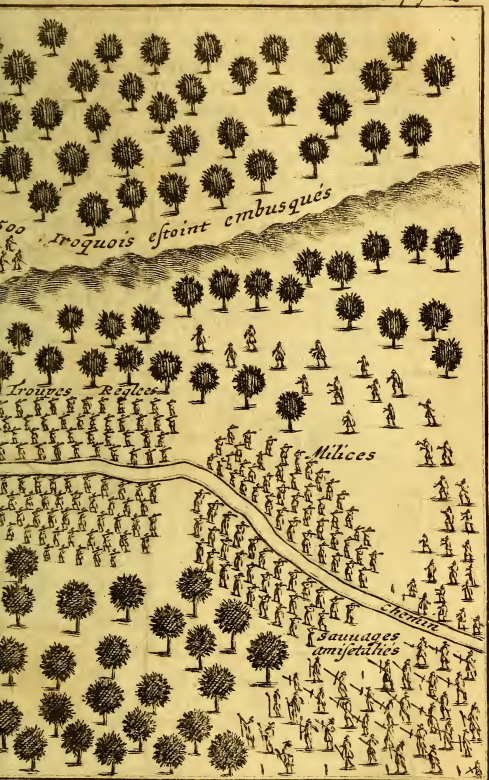 500 Iroquois eſtoint embusqués
Troupes Reglees
Milices
chemin
Sauuages
amis et aliés